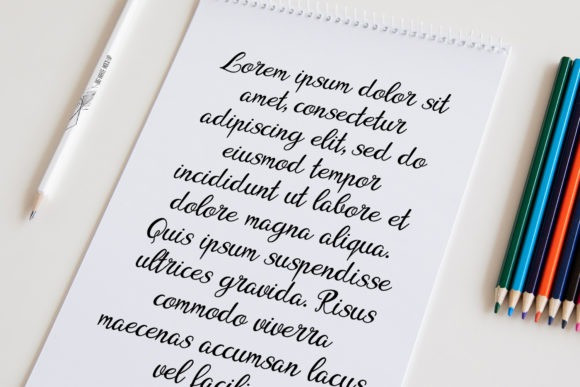 Lorem ipsum dolor sit
amet, consectetur
adipiscing elit, sed do
eiusmod tempor
incididunt ut labore et
dolore magna aliqua.
Quis ipsum suspendisse
ultrices gravida. Risus
commodo viverra
maecenas accumsan lacus
vel facili